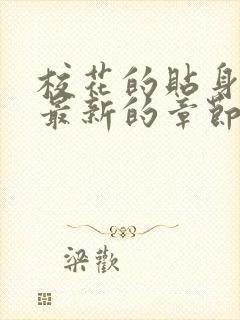 校花的貼身
最新的章節
梁歡